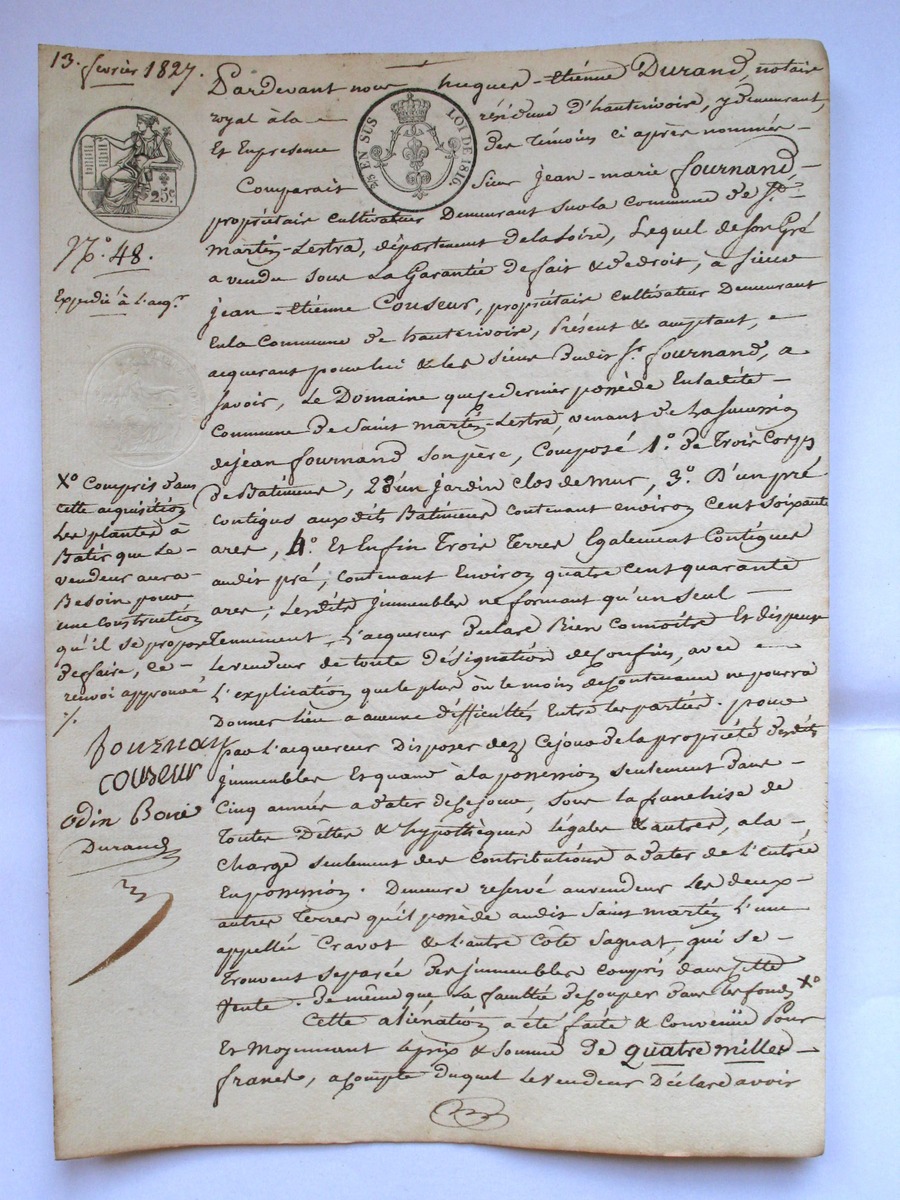 13. février 1827.
Pardevant nous hugues-étienne Durand, notaire
royal à la résidence d'hauterivoire, y demeurant,
Et En presence des Témoins ci après nommés
2/5 EN SUS LOI DE 1816.
25c.
Comparait Sieur Jean-marie fournand,
propriétaire cultivateur Demeurant sur la Commune de St
martin-Lestra, département de la Loire, Lequel de son Gré
a vendu sous La Garantie de fait & de droit, à Sieur
Jean-étienne Couseur, propriétaire cultivateur Demeurant
En la Commune de hauterivoire, Présent & acceptant,
acquerant pour lui & les siens dudit Sr. fournand, a
Savoir, Le Domaine que ce dernier possède En la dite
Commune de Saint martin-Lestra, venant de La succession
de jean fournand son père, Composé 1o. de Trois Corps
de Batiments, 2o d'un jardin clos de mur, 3o. D'un pré
contigus aux dits Batiments contenant environ Cent soixante
ares, 4o. Et Enfin Trois Terres Egalement Contigues
audit pré, contenant Environ quatre cent quarante
ares; Lesdits Immeubles ne formant qu'un seul
Tennement. L'acquereur Declare Bien Connoitre Et dispense
Le vendeur de toute désignation de Confins, avec
L'explication que le plus ou le moins de Contenance ne pourra
Donner lieu a aucune difficultés Entre les parties. pour
par L'acquereur Disposer dez Ce jour de la propriété desdits
Immeubles Et quant à la possession seulement dans
Cinq années a dater de Ce jour, sous la franchise de
Toutes Dettes & hypothèques légales & autres, a la
Charge seulement des Contributions a dater de l'Entrée
En possession. Demeure reservé au vendeur Les deux
autres Terres qu'il possède audit Saint martin L'une
appellée Cravot & L'autre Côte Sagnat, qui se
Trouvent séparée des Immeubles compris dans Cette
Vente. De même que La faculté de Couper dans les fonds Xo
Cette aliénation a été faite & Convenue Pour
Et Moyennant le prix & somme de quatre milles
francs, a compte duquel Le vendeur Déclare avoir
No. 48.
Expedié à L'acqr.
Xo Compris dans
cette acquisition
Les plantes à
Batir que Le
vendeur aura
Besoin pour
une Construction
qu'il se propose
de faire, Ce
renvoi approuvé
fournand
couseur
Odin Boué
Durand